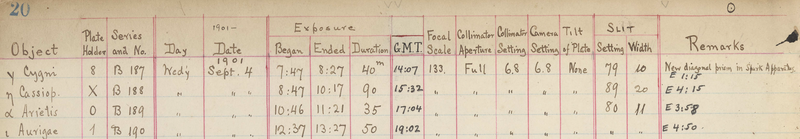 20
1901-
Object Plate Holder Series and No. Day Date Exposure Began Ended Duration G.M.T. Focal Scale Collimator Aperture Collimator Setting Camera Setting Tilt of Plate SLIT Setting Width Remarks
1901
γ Cygni 8 B 187 Wedy Sept. 4 7:47 8:27 40m 14:07 133. Full 6.8 6.8 None 79 10 New diagonal prism in Spark Apparatus. E 1:15
η Cassiop. X B 188 " " 8:47 10:17 90 15:32 " " " " " 89 20 E 4:15
α Arietis 0 B 189 " " 10:46 11:21 35 17:04 " " " " " 80 11 E 3:58
ι Aurigae 1 B 190 " " 12:37 13:27 50 19:02 " " " " " " " E 4:50